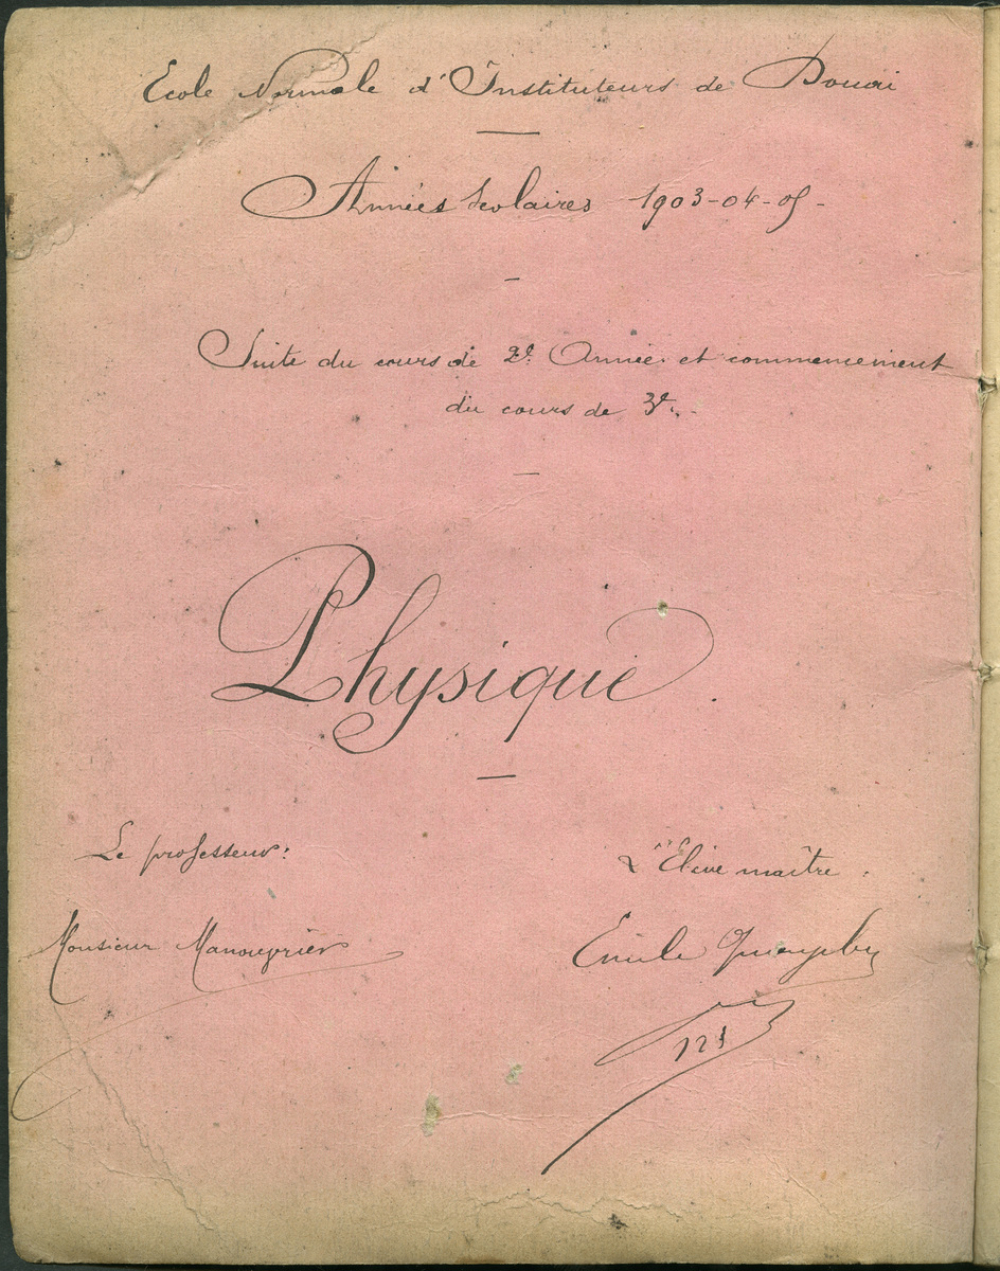 Ecole Normale d'Instituteurs de Douai
Années Scolaires 1903-04-05-
Suite du cours de 2e Année et commencement
du cours de 3e.
Physique.
Le professeur:
L'Elève maître.
Monsieur
Emile